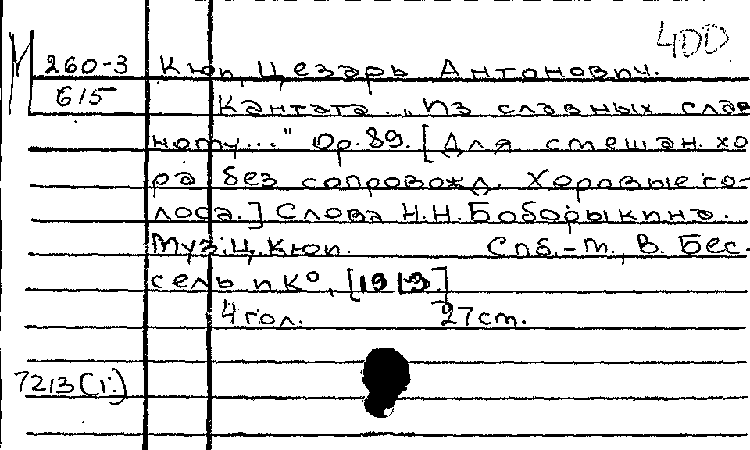 400
М 260-3 Кюи, Цезарь Антонович.
615 Кантата „Из славных слав
ному..." Op. 89. [Для смешан. хо
ра без сопровожд. Хоровые го-
лоса.] Слова Н.Н. Боборыкина.
Муз. Ц. Кюи. Спб.-М., В. Бес-
сель и К°, [1913.]
4 гол. 27 см.
7213(1:)